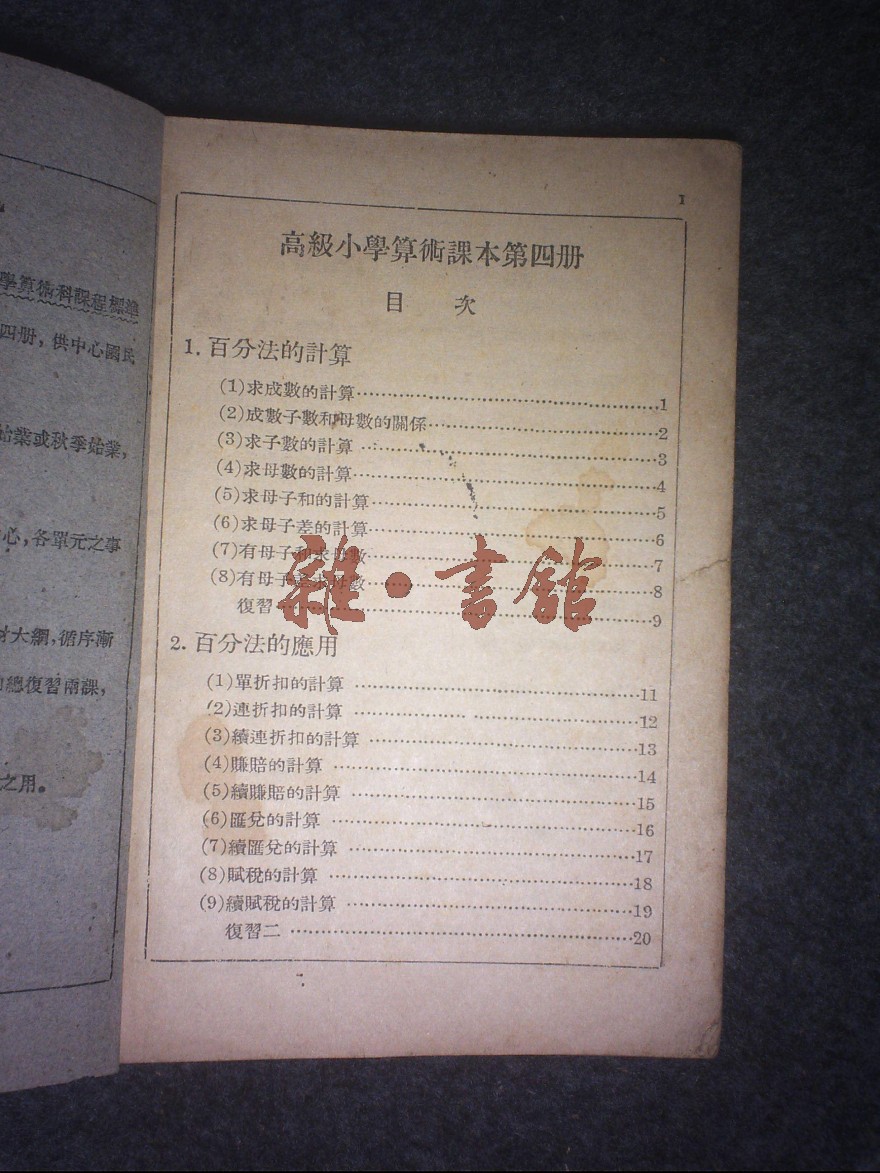 學算術科課程標準
四册，供中心國民
始業或秋季始業，
心，各單元之事
材大綱，循序漸
總復習兩課，
之用。
1
高級小學算術課本第四册
目 次
1. 百分法的計算
(1)求成數的計算……1
(2)成數子數和母數的關係……2
(3)求子數的計算……3
(4)求母數的計算……4
(5)求母子和的計算……5
(6)求母子差的計算……6
(7)有母子和求母數……7
(8)有母子差求母數……8
復習一……9
2. 百分法的應用
(1)單折扣的計算……11
(2)連折扣的計算……12
(3)續連折扣的計算……13
(4)賺賠的計算……14
(5)續賺賠的計算……15
(6)匯兌的計算……16
(7)續匯兌的計算……17
(8)賦稅的計算……18
(9)續賦稅的計算……19
復習二……20
雜·書館